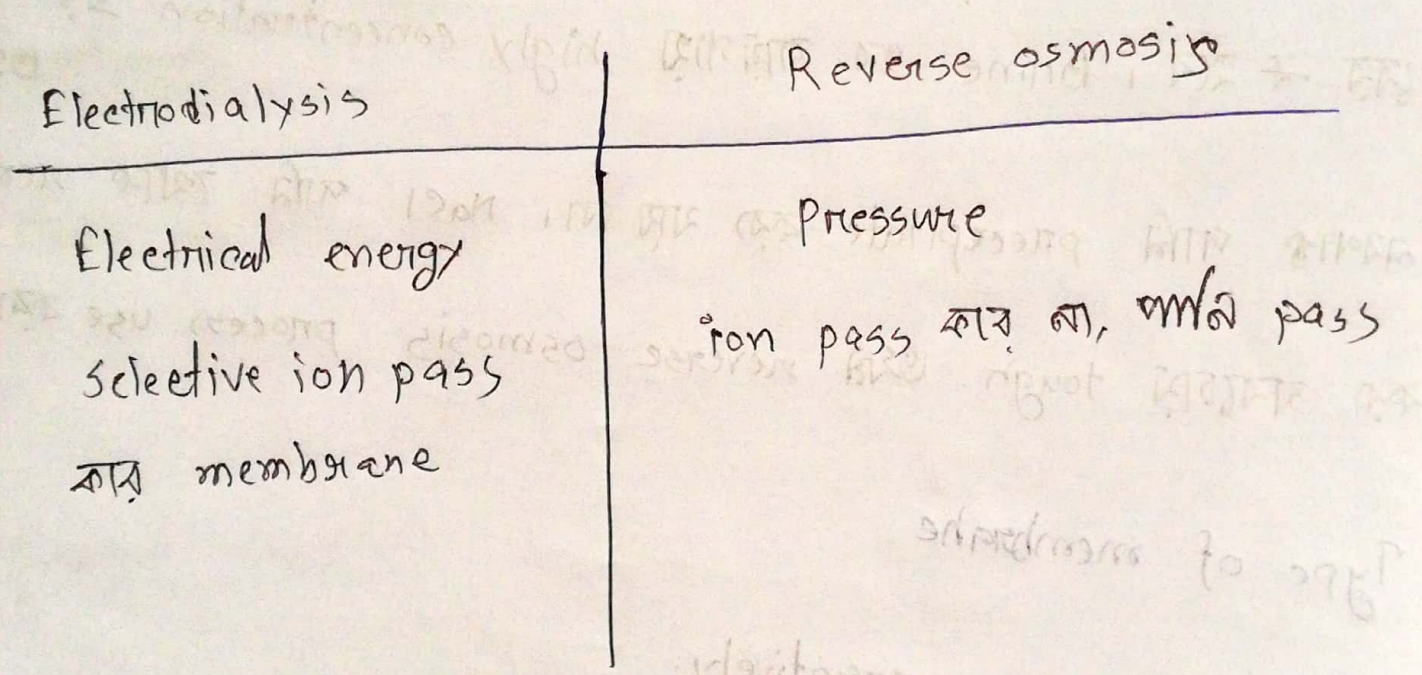 Electrodialysis
Reverse osmosis
Electrical energy
selective ion pass
করে membrane
Pressure
ion pass করে না, পানি pass